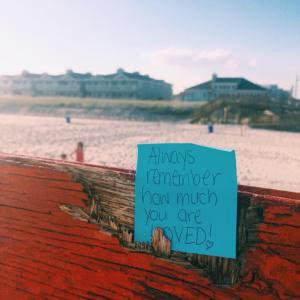 Always
remember
how much
you are
LOVED!